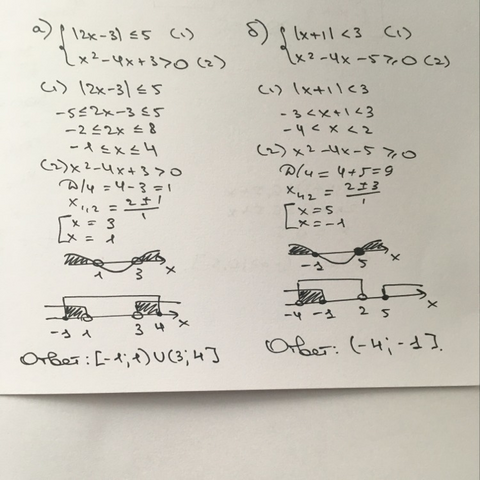 а) { |2x-3| ≤ 5 (1)
x² - 4x + 3 > 0 (2)
(1) |2x-3| ≤ 5
-5 ≤ 2x-3 ≤ 5
-2 ≤ 2x ≤ 8
-1 ≤ x ≤ 4
(2) x² - 4x + 3 > 0
D/4 = 4 - 3 = 1
x₁,₂ = (2 ± 1)/1
[ x = 3
x = 1
1 3 x
-1 1 3 4 x
Ответ: [-1; 1) ∪ (3; 4]
б) { |x+1| < 3 (1)
x² - 4x - 5 ≥ 0 (2)
(1) |x+1| < 3
-3 < x+1 < 3
-4 < x < 2
(2) x² - 4x - 5 ≥ 0
D/4 = 4 + 5 = 9
x₁,₂ = (2 ± 3)/1
[ x = 5
x = -1
-1 5 x
-4 -1 2 5 x
Ответ: (-4; -1].